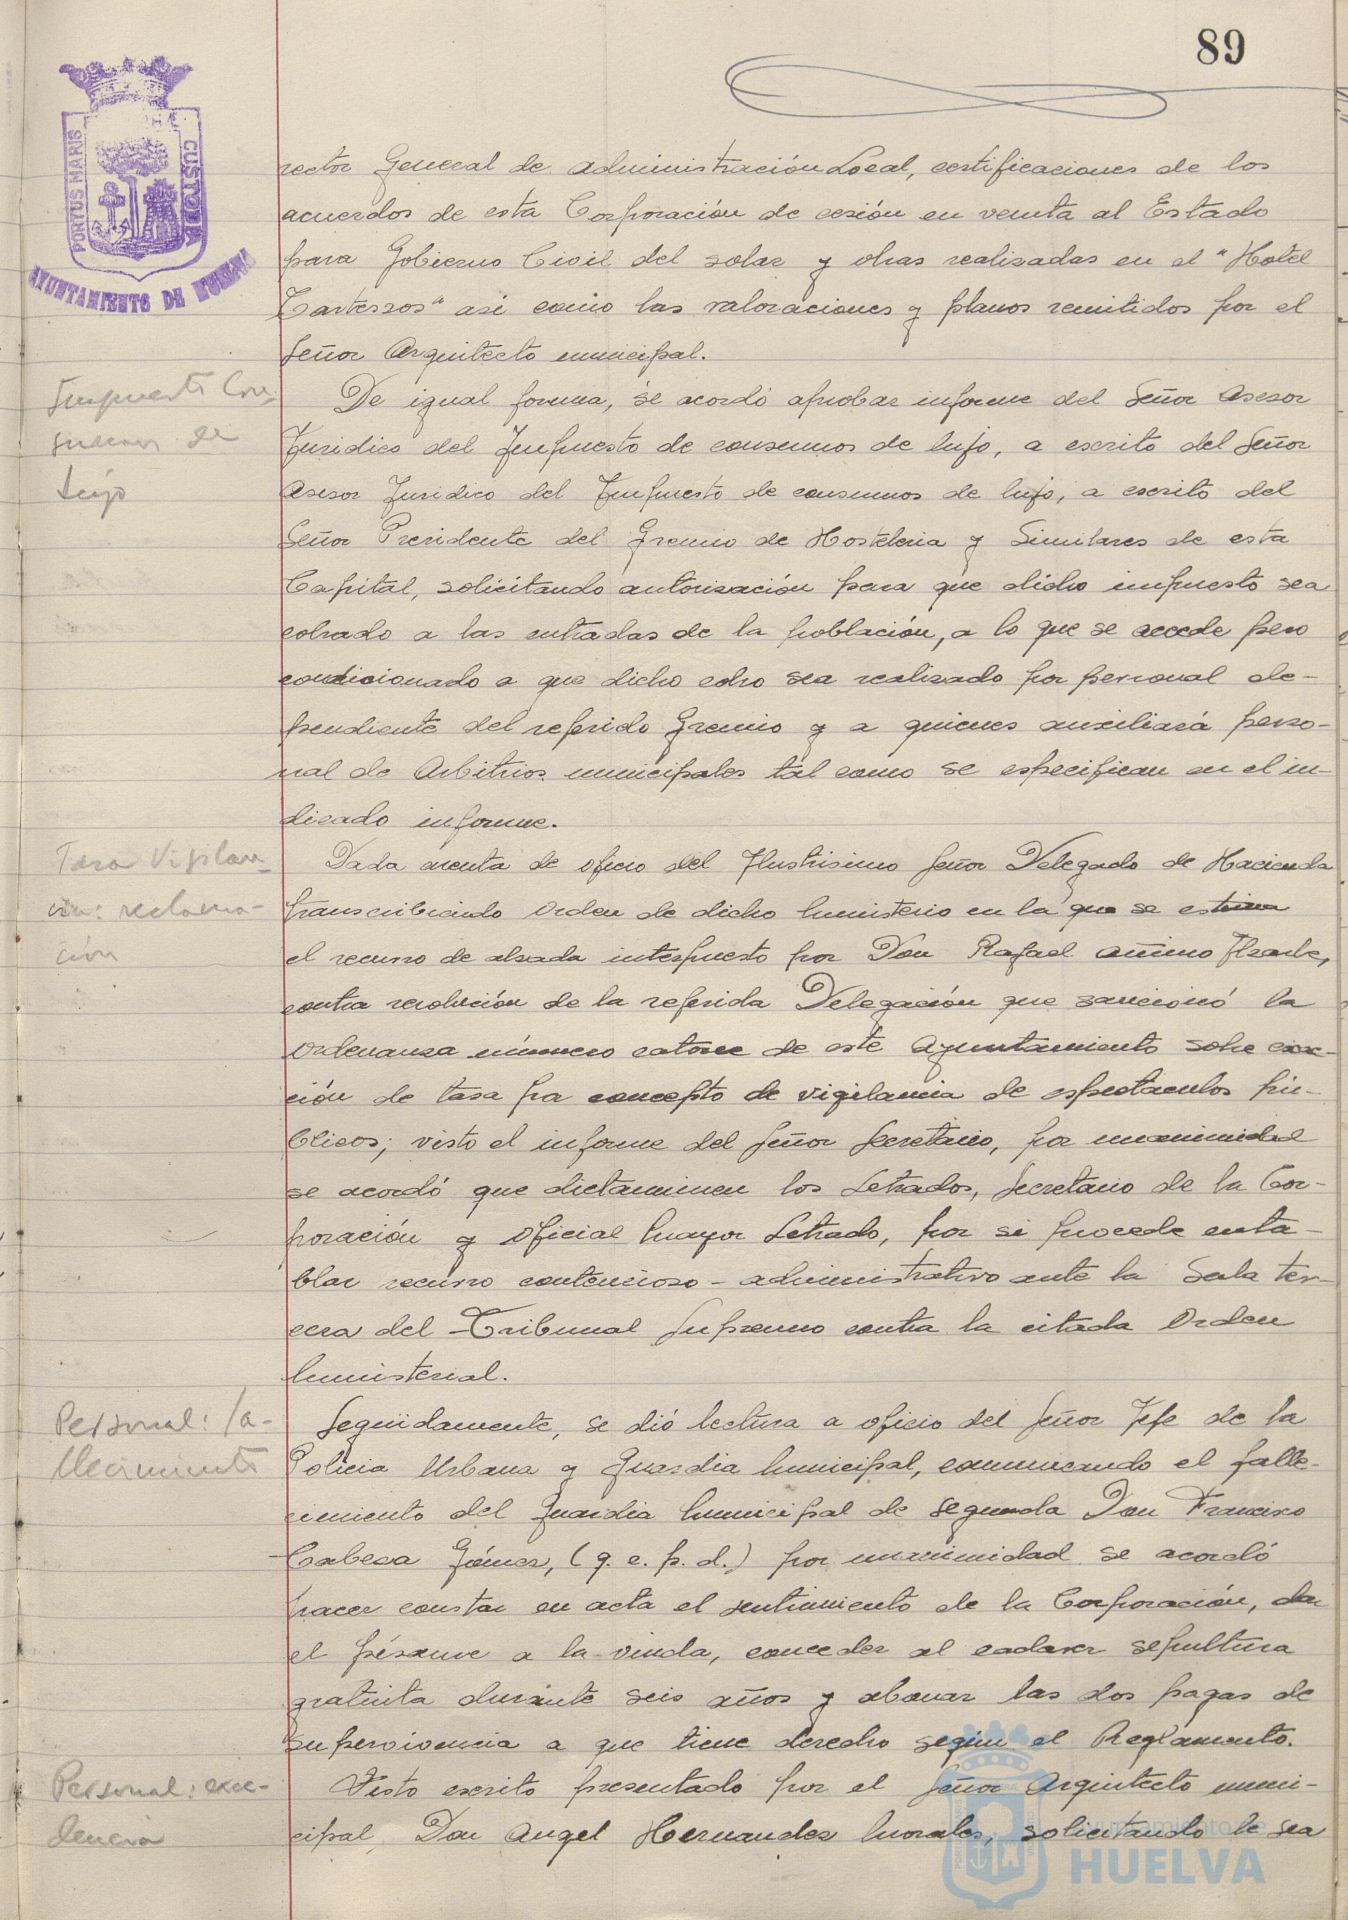 89
PORTUS MARIS
CUSTODIA
AYUNTAMIENTO DE HUELVA
rector General de Administración Local, certificaciones de los
acuerdos de esta Corporación de cesión en venta al Estado
para Gobierno Civil del solar y obras realizadas en el "Hotel
Tartessos" asi como las valoraciones y planos remitidos por el
Señor Arquitecto municipal.
Impuesto Con-
sumos de
Lujo
De igual forma, se acordó aprobar informe del Señor Asesor
Juridico del Impuesto de consumos de lujo, a escrito del Señor
Asesor Juridico del Impuesto de consumos de lujo, a escrito del
Señor Presidente del Gremio de Hosteleria y Similares de esta
Capital, solicitando autorización para que dicho impuesto sea
cobrado a las entradas de la población, a lo que se accede pero
condicionado a que dicho cobro sea realizado por personal de-
pendiente del referido Gremio y a quienes auxiliará perso-
nal de Arbitrios municipales tal como se especifican en el in-
dicado informe.
Tasa Vigilan-
cia: reclama-
ción
Dada cuenta de oficio del Ilustrisimo Señor Delegado de Hacienda
transcribiendo Orden de dicho Ministerio en la que se estima
el recurso de alzada interpuesto por Don Rafael
contra resolución de la referida Delegación que sancionó la
Ordenanza número catorce de este Ayuntamiento sobre exac-
ción de tasa por concepto de vigilancia de espectaculos pú-
blicos; visto el informe del Señor Secretario, por unanimidad
se acordó que dictaminen los Letrados, Secretario de la Cor-
poración y Oficial Mayor Letrado, por si procede enta-
blar recurso contencioso-administrativo ante la Sala ter-
cera del Tribunal Supremo contra la citada Orden
Ministerial.
Personal: fa-
llecimiento
Seguidamente, se dió lectura a oficio del Señor Jefe de la
Policia Urbana y Guardia Municipal, comunicando el falle-
cimiento del Guardia Municipal de segunda Don Francisco
Cabeza Gómez, (q. e. p. d.) por unanimidad se acordó
hacer constar en acta el sentimiento de la Corporación, dar
el pésame a la viuda, conceder al cadaver sepultura
gratuita durante seis años y abonar las dos pagas de
supervivencia a que tiene derecho según el Reglamento.
Personal: exce-
dencia
Visto escrito presentado por el Señor Arquitecto muni-
cipal, Don Angel Hernandez Morales, solicitando le sea
Ayuntamiento de
HUELVA